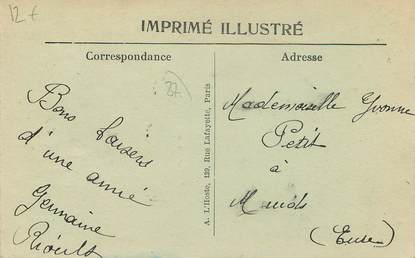 12 f
IMPRIMÉ ILLUSTRÉ
Correspondance
Adresse
27
Bons baisers
d'une amie
Germaine
A. L'Hoste, 139, Rue Lafayette, Paris
Mademoiselle Yvonne
Petit
à
Muids
(Eure)